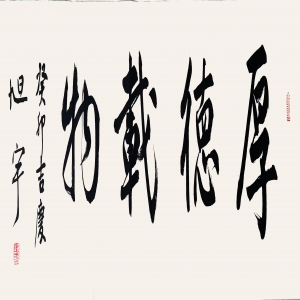 厚德載物
癸卯吉慶
旭宇